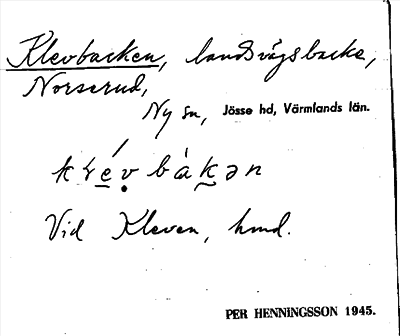 Klevbacken, landsvägsbacke,
Norserud,
Ny sn, Jösse hd, Värmlands län.
Vid Kleven, hmd.
PER HENNINGSSON 1945.